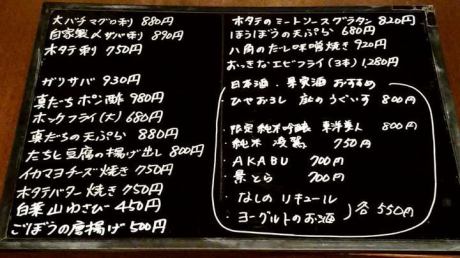 大バチマグロ刺 880円
自家製〆サバ刺 890円
ホタテ刺 750円
ガリサバ 930円
真だちポン酢 980円
ホックフライ(大) 680円
真だちの天ぷら 880円
たちと豆腐の揚げ出し 800円
イカマヨチーズ焼き 750円
ホタテバター焼き 750円
白菜山わさび 450円
ごぼうの唐揚げ 500円
ホタテのミートソースグラタン 820円
ほうぼうの天ぷら 680円
八角のだし味噌焼き 920円
おっきなエビフライ(3本) 1,280円
日本酒・果実酒おすすめ
・ひやおろし 庭のうぐいす 800円
・限定純米吟醸 東洋美人 800円
・純米 浚鷲 750円
・AKABU 700円
・景とら 700円
・なしのリキュール
・ヨーグルトのお酒 各550円